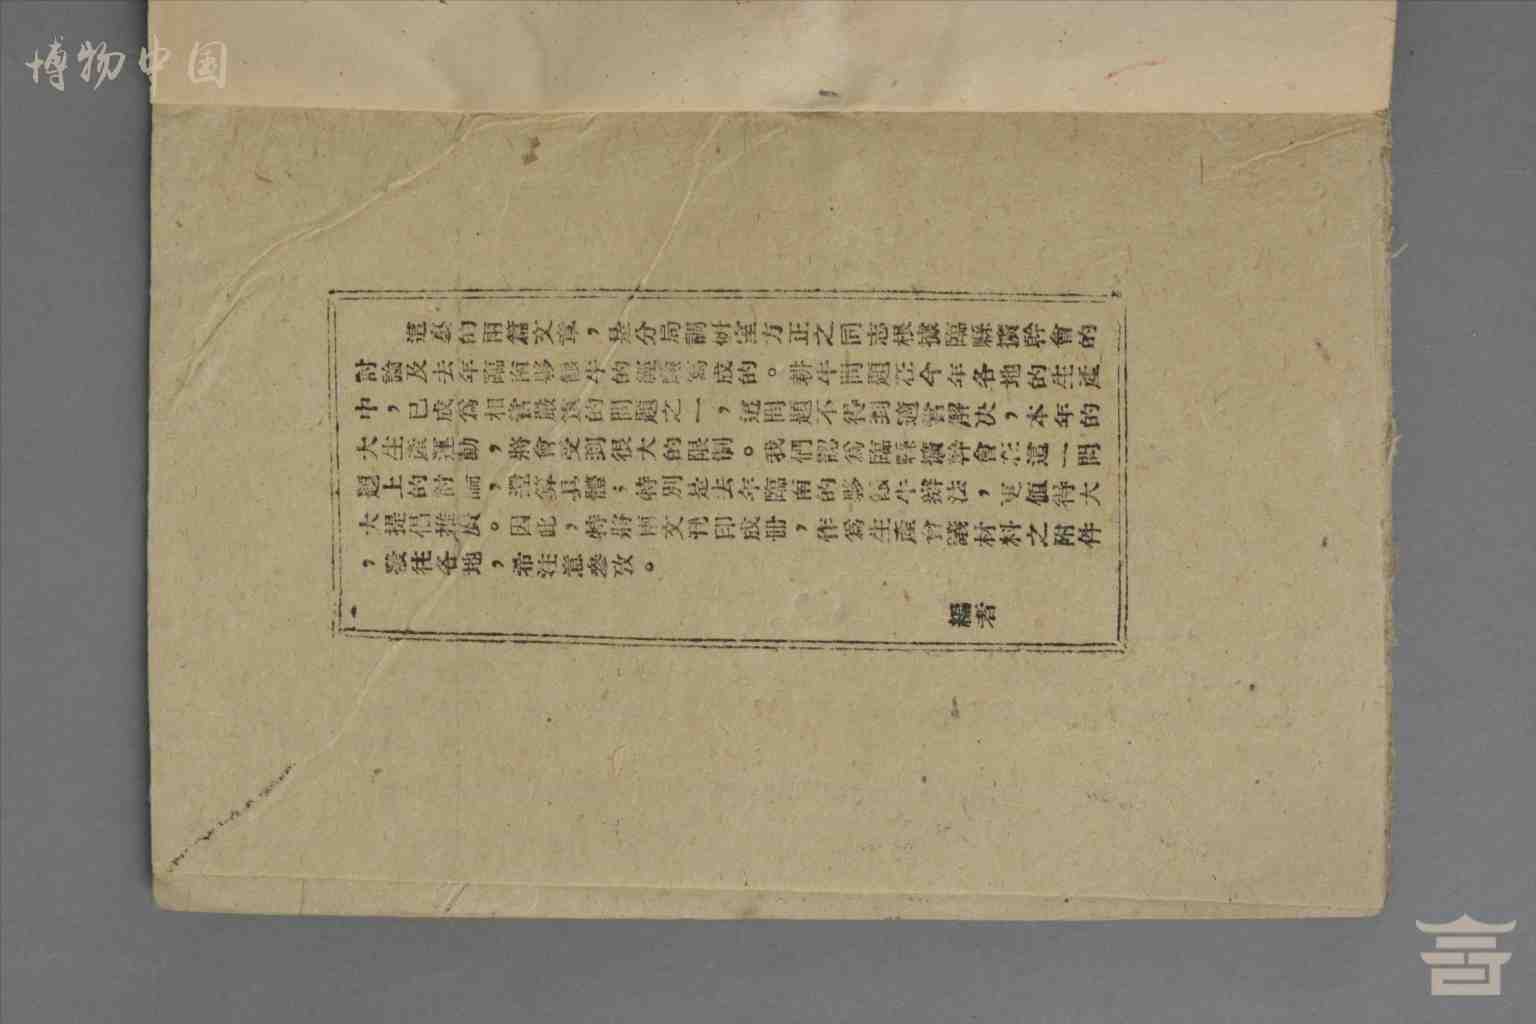 博物中国
這裏的兩篇文章，是分局調研室方正之同志根據臨縣擴幹會的
討論及去年臨南夥飼牛的經驗寫成的。耕牛問題在今年各地的生產
中，已成爲相當嚴重的問題之一，這問題不得到適當解决，本年的
大生產運動，將會受到很大的限制。我們認爲臨縣擴幹會在這一問
題上的討論，還算具體；特別是去年臨南的夥飼牛辦法，更值得大
大提倡推廣。因此，特將兩文刊印成冊，作爲生產會議材料之附件
，發往各地，希注意參攷。
編者